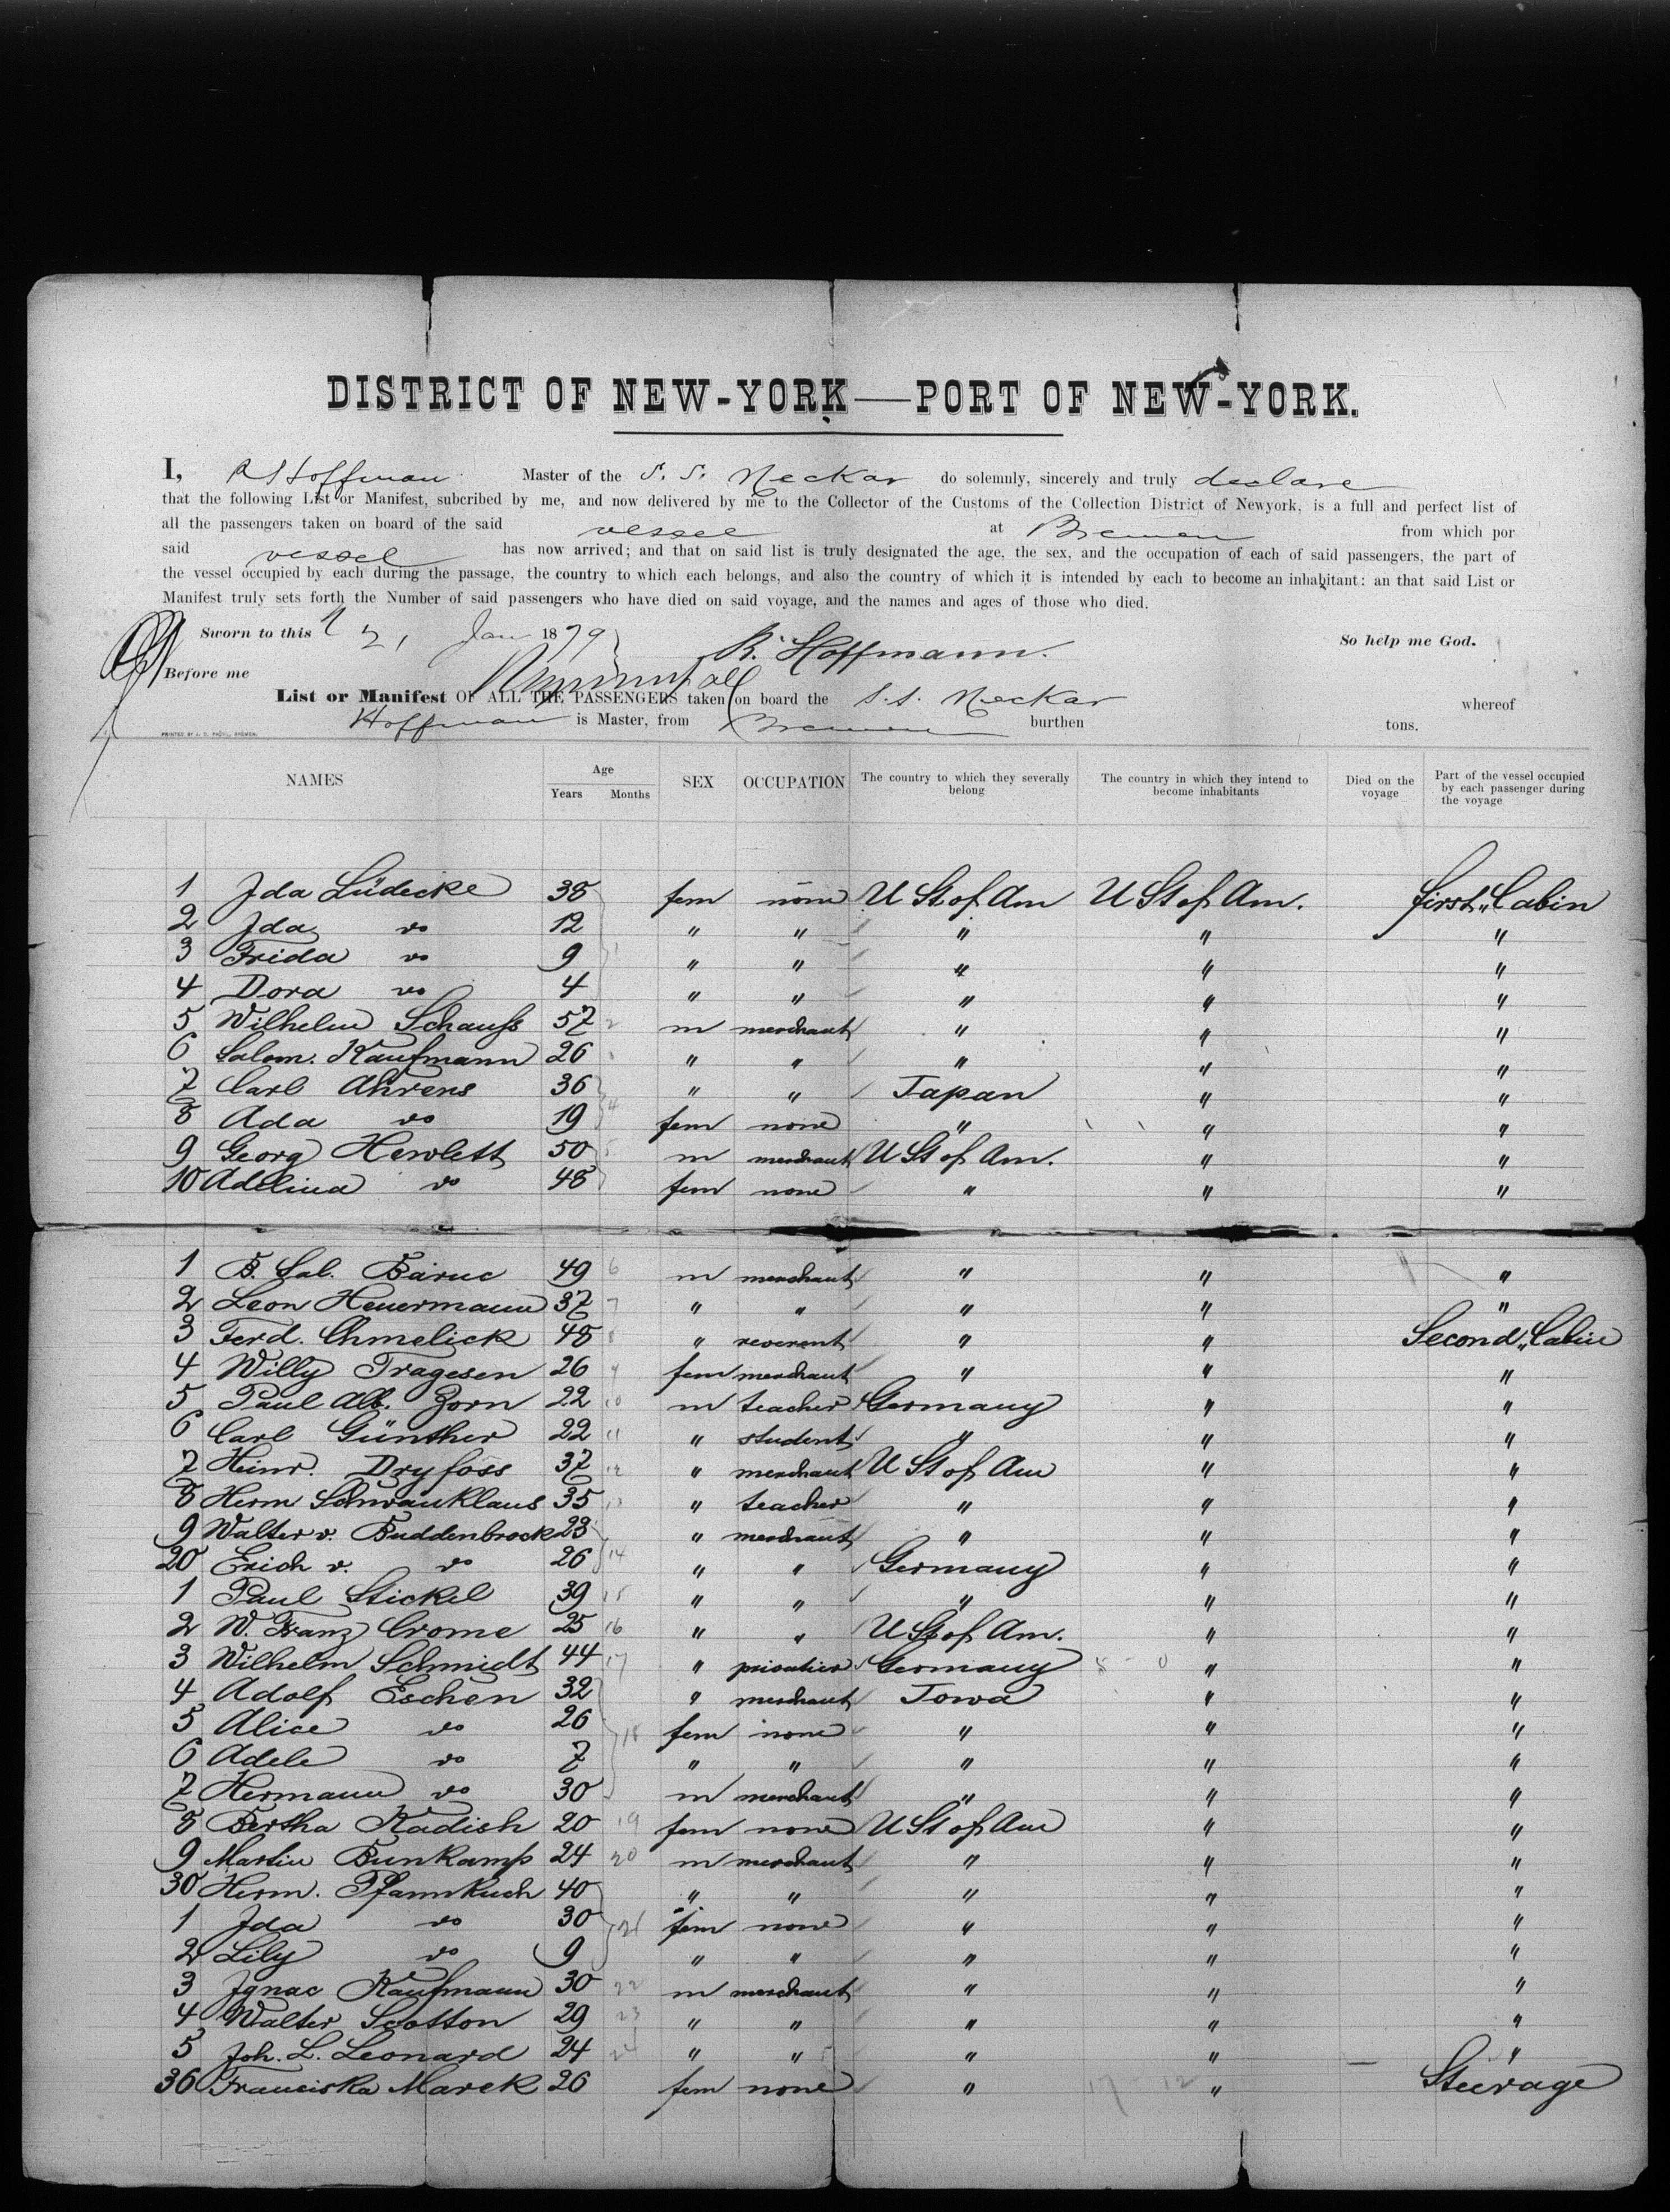 DISTRICT OF NEW-YORK—PORT OF NEW-YORK.
I, R Hoffman Master of the S. S. Neckar do solemnly, sincerely and truly declare
that the following List or Manifest, subcribed by me, and now delivered by me to the Collector of the Customs of the Collection District of Newyork, is a full and perfect list of
all the passengers taken on board of the said vessel at Bremen from which por
said vessel has now arrived; and that on said list is truly designated the age, the sex, and the occupation of each of said passengers, the part of
the vessel occupied by each during the passage, the country to which each belongs, and also the country of which it is intended by each to become an inhabitant: an that said List or
Manifest truly sets forth the Number of said passengers who have died on said voyage, and the names and ages of those who died.
Sworn to this Jan 1879 R. Hoffmann. So help me God.
Before me
List or Manifest OF ALL THE PASSENGERS taken on board the S. S. Neckar whereof
Hoffman is Master, from Bremen burthen tons.
NAMES Age Years Months SEX OCCUPATION The country to which they severally belong The country in which they intend to become inhabitants Died on the voyage Part of the vessel occupied by each passenger during the voyage
1 Ida Lüdecke 38 fem none U St of Am U St of Am. first Cabin
2 Ida do 12 " " " " "
3 Frida do 9 " " " " "
4 Dora do 4 " " " " "
5 Wilhelm Schauss 57 2 m merchant " " "
6 Salom. Kaufmann 26 " " " " "
7 Carl Ahrens 36 " " Japan " "
8 Ada do 19 4 fem none " " "
9 Georg Hewlett 50 5 m merchant U St of Am. " "
10 Adelina do 48 fem none " " "
1 B. Sal. Baruc 49 6 m merchant " " "
2 Leon Heuermann 37 7 " " " " "
3 Ferd. Chmelick 48 8 " reverent " " Second Cabin
4 Willy Tragesen 26 9 fem merchant " " "
5 Paul Alb. Zorn 22 10 m teacher Germany " "
6 Carl Günther 22 11 " student " " "
7 Heinr. Dryfoss 37 12 " merchant U St of Am " "
8 Herm Schwanklaus 35 13 " teacher " " "
9 Walter v. Buddenbrock 23 " merchant " " "
20 Erich v. do 26 14 " " Germany " "
1 Paul Stickel 39 15 " " " " "
2 W. Franz Crome 25 16 " " U St of Am. " "
3 Wilhelm Schmidt 44 17 " Germany " "
4 Adolf Eschen 32 " merchant Iowa " "
5 Alice do 26 18 fem none " " "
6 Adele do 7 " " " " "
7 Hermann do 30 m merchant " " "
8 Bertha Kadish 20 19 fem none U St of Am " "
9 Martin Bunkamp 24 20 m merchant " " "
30 Herm. Pfannkuch 40 " " " " "
1 Ida do 30 21 fem none " " "
2 Lily do 9 " " " " "
3 Ignac Kaufmann 30 22 m merchant " " "
4 Walter Scotton 29 23 " " " " "
5 Joh. L. Leonard 24 24 " " " " "
36 Franciska Marek 26 fem none " 17 - 12 " Steerage